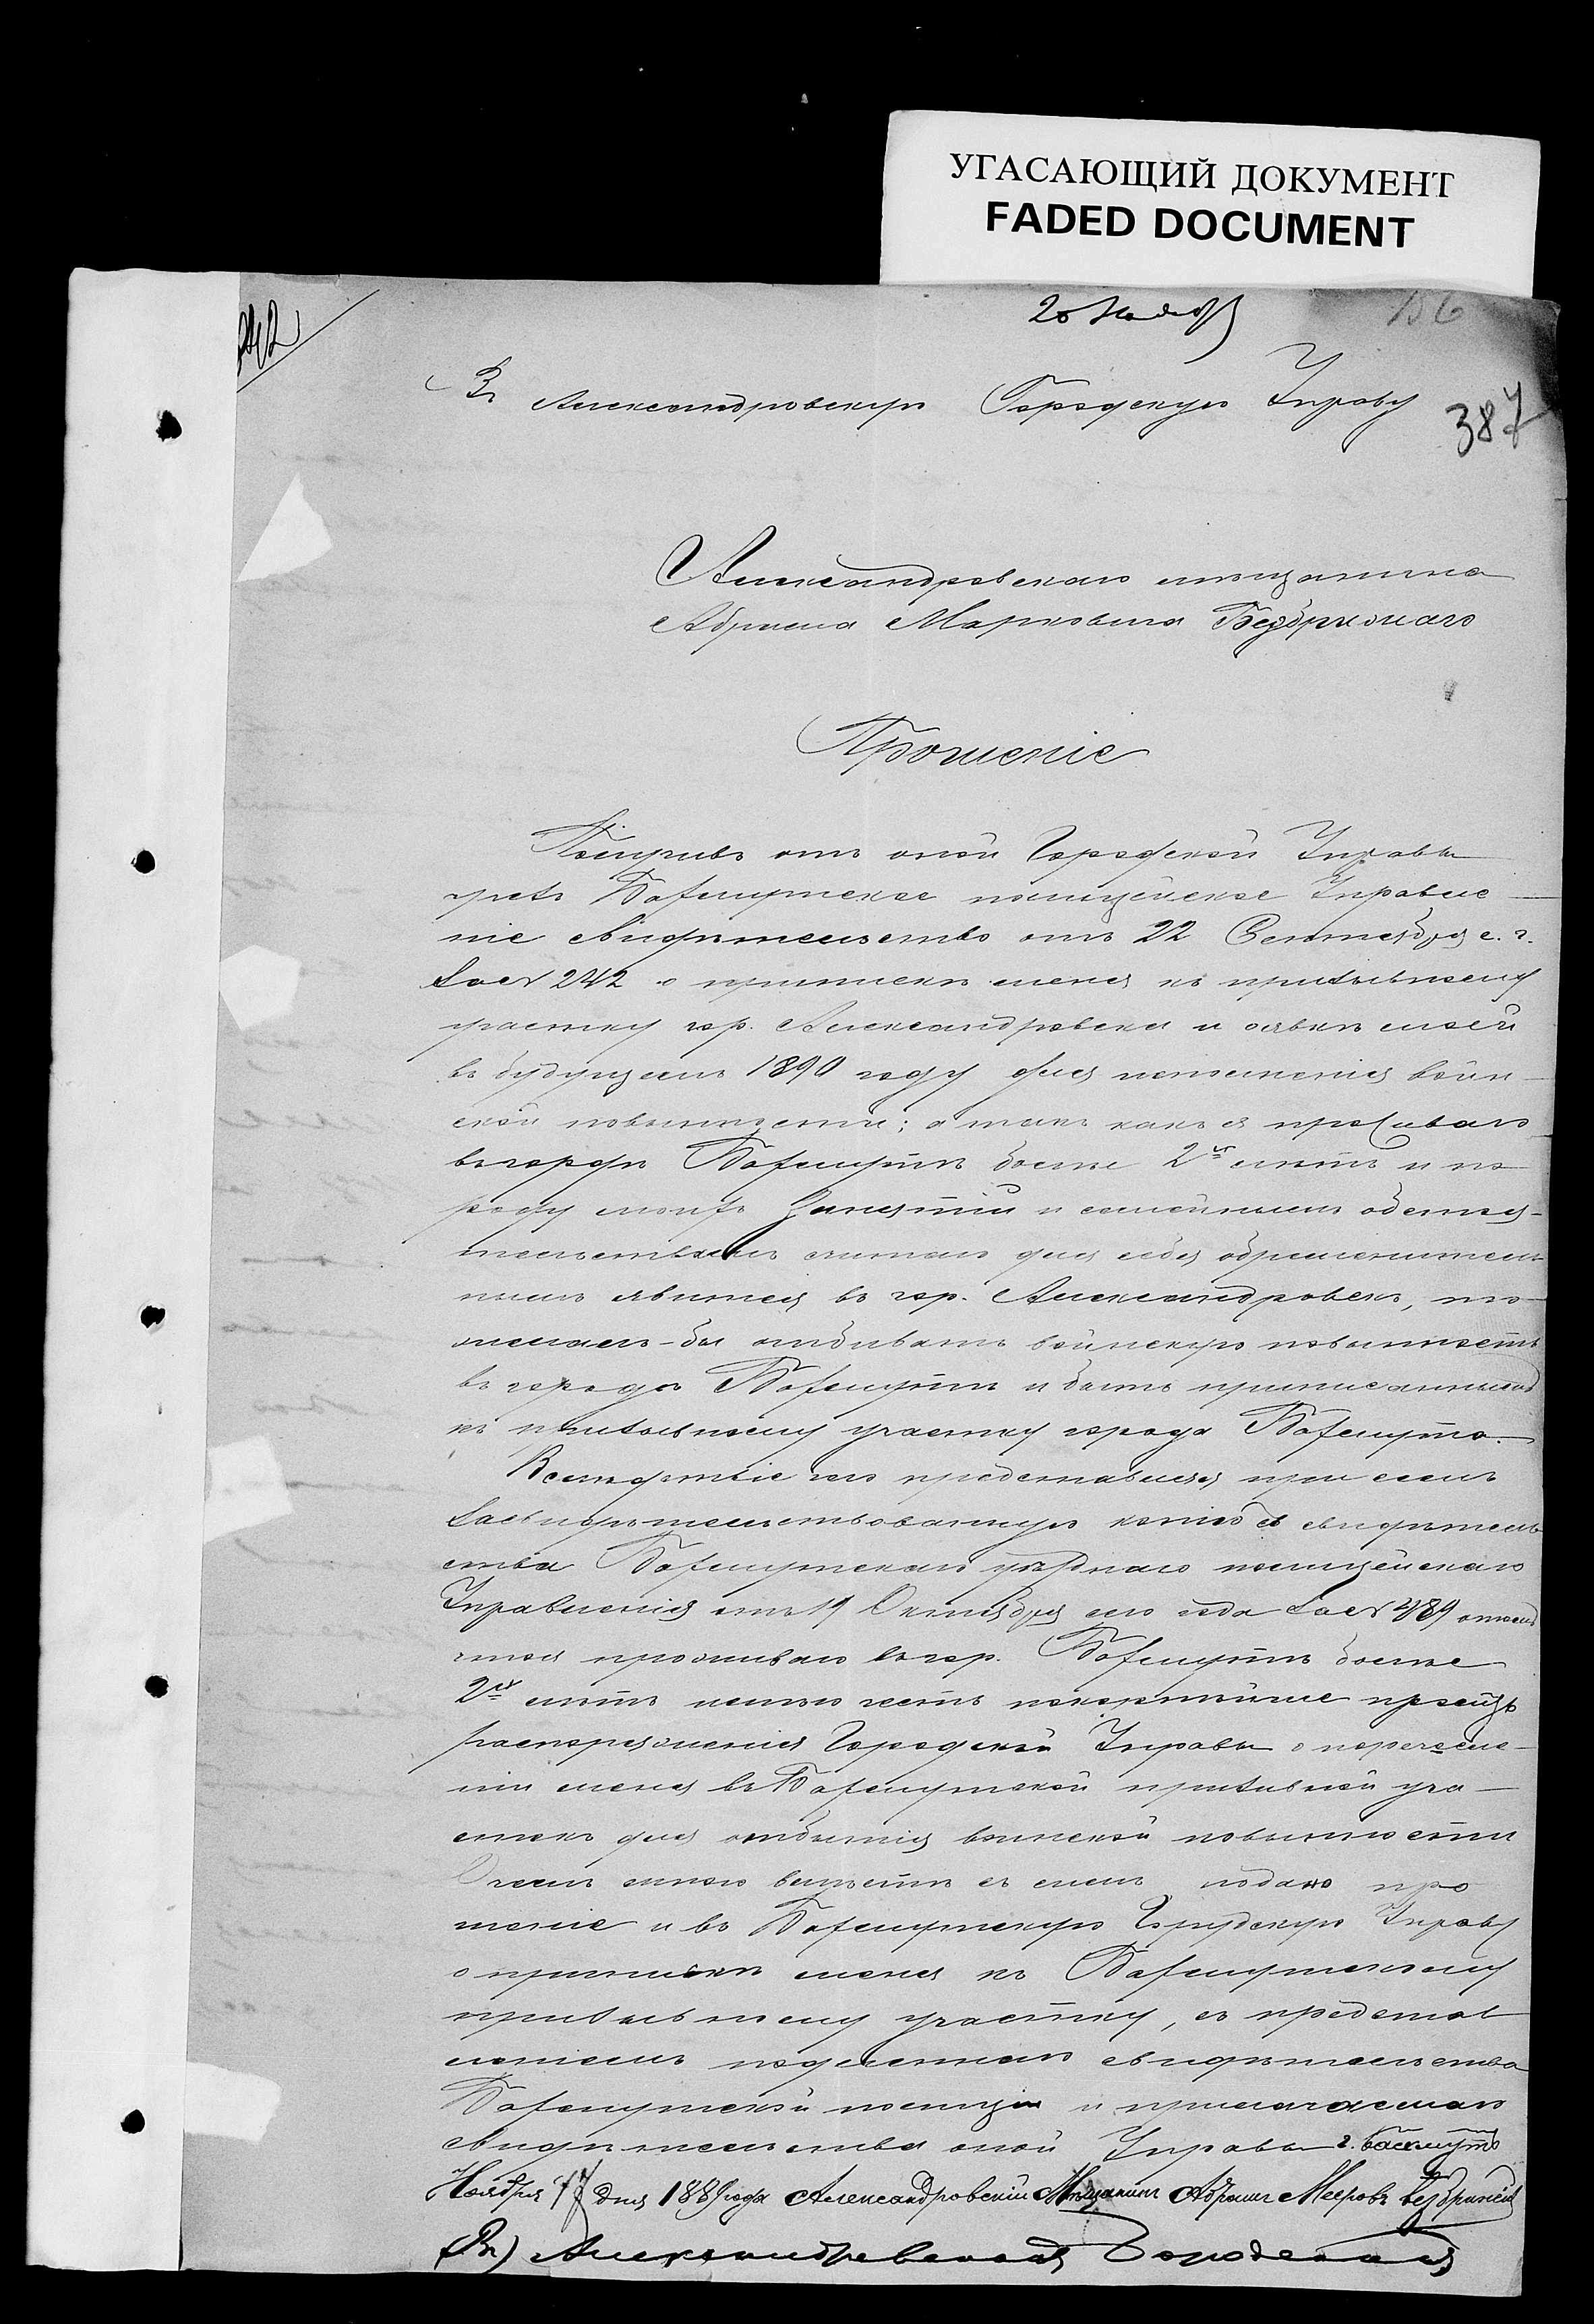 УГАСАЮЩИЙ ДОКУМЕНТ
FADED DOCUMENT
20 Ноября
156
Въ Александровскую Городскую Управу
387
Александровскаго мѣщанина
Абрама Марковича
Прошеніе
Получивъ отъ оной Городской Управы
чрезъ Бахмутское полицейское Управле
ніе свидѣтельство отъ 22 Сентября с. г.
за № 242 о припискѣ меня къ призывному
участку гор. Александровска и о явкѣ моей
въ будущемъ 1890 году для исполненія воин-
ской повинности; а такъ какъ я проживаю
въ городѣ Бахмутѣ болѣе 2хъ лѣтъ и по
роду моихъ занятій и семейнымъ обстоя-
тельствамъ считаю для себя обременитель
нымъ явиться въ гор. Александровскъ, то
желалъ-бы отбывать воинскую повинность
въ городѣ Бахмутѣ и быть приписаннымъ
къ призывному участку города Бахмута.
Вслѣдствіе чего представляя при семъ
засвидѣтельствованную копію съ свидѣтель
ства Бахмутскаго уѣзднаго полицейскаго
Управленія отъ 19 Октября сего года за № 489 о томъ
что я проживаю въ гор. Бахмутѣ болѣе
2хъ лѣтъ имѣю честь покорнѣйше просить
распоряженія Городской Управы о перечисле-
ніи меня въ Бахмутской призывной уча-
стокъ для отбытія воинской повинности
О чемъ мною вмѣстѣ съ симъ подано про
шеніе и въ Бахмутскую Городскую Управу
о припискѣ меня къ Бахмутскому
призывному участку, съ представ
леніемъ подлиннаго свидѣтельства
Бахмутской полиціи и прилагаемаго
свидѣтельства оной Управы г. Бахмутъ
Ноября 17 дня 1889 года Александровскій Мѣщанинъ Абрамъ Мееровъ
Въ) Александровская Городская